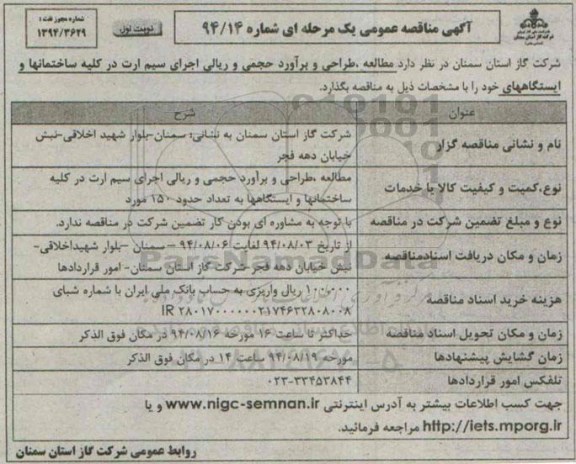 شماره مجوز نفت :
۱۳۹۴/۳۶۲۹
نوبت اول
آگهی مناقصه عمومی یک مرحله ای شماره ۹۴/۱۴
شرکت گاز استان سمنان
شرکت گاز استان سمنان در نظر دارد مطالعه ،طراحی و برآورد حجمی و ریالی اجرای سیم ارت در کلیه ساختمانها و
ایستگاههای خود را با مشخصات ذیل به مناقصه بگذارد.
عنوان
شرح
نام و نشانی مناقصه گزار
شرکت گاز استان سمنان به نشانی: سمنان-بلوار شهید اخلاقی-نبش
خیابان دهه فجر
نوع،کمیت و کیفیت کالا یا خدمات
مطالعه ،طراحی و برآورد حجمی و ریالی اجرای سیم ارت در کلیه
ساختمانها و ایستگاهها به تعداد حدود ۱۵۰ مورد
نوع و مبلغ تضمین شرکت در مناقصه
با توجه به مشاوره ای بودن کار تضمین شرکت در مناقصه ندارد.
زمان و مکان دریافت اسنادمناقصه
از تاریخ ۹۴/۰۸/۰۳ لغایت ۹۴/۰۸/۰۶ – سمنان –بلوار شهیداخلاقی-
نبش خیابان دهه فجر-شرکت گاز استان سمنان- امور قراردادها
هزینه خرید اسناد مناقصه
۱۰۰،۰۰۰ ریال واریزی به حساب بانک ملی ایران با شماره شبای
زمان و مکان تحویل اسناد مناقصه
حداکثر تا ساعت ۱۶ مورخه ۹۴/۰۸/۱۶ در مکان فوق الذکر
زمان گشایش پیشنهادها
مورخه ۹۴/۰۸/۱۹ ساعت ۱۴ در مکان فوق الذکر
تلفکس امور قراردادها
۰۲۳-۳۳۴۵۳۸۴۴
جهت کسب اطلاعات بیشتر به آدرس اینترنتی www.nigc-semnan.ir و یا
http://iets.mporg.ir مراجعه فرمائید.
روابط عمومی شرکت گاز استان سمنان
ParsNamadData